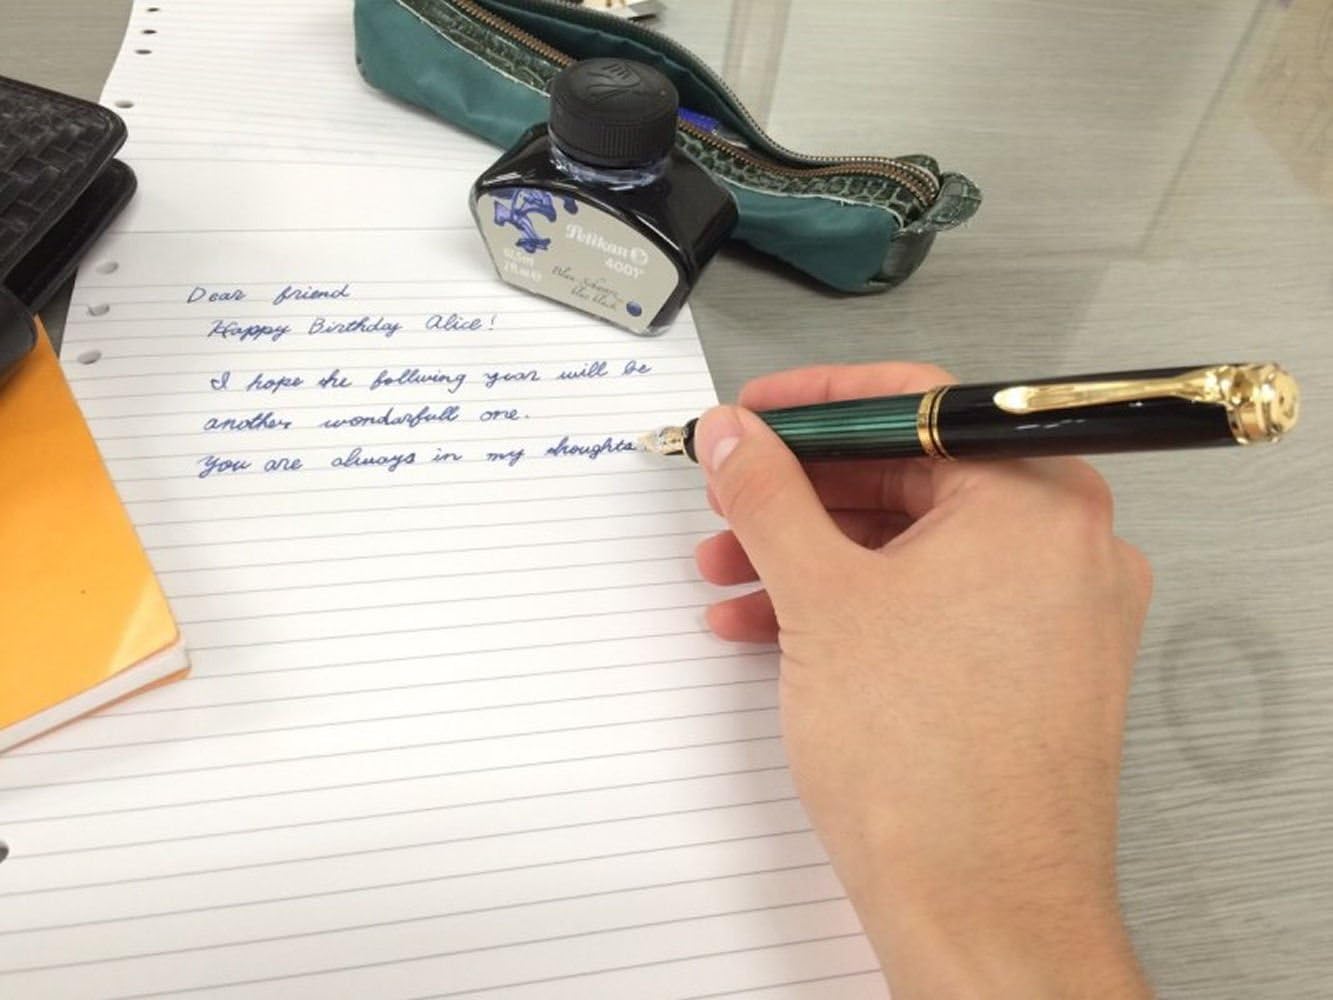 Dear friend
Happy Birthday Alice!
I hope the follwing year will be
another wonderfull one.
You are always in my thoughts
Pelikan
4001
62,5ml
2 fl oz
Blau-Schwarz
blue black